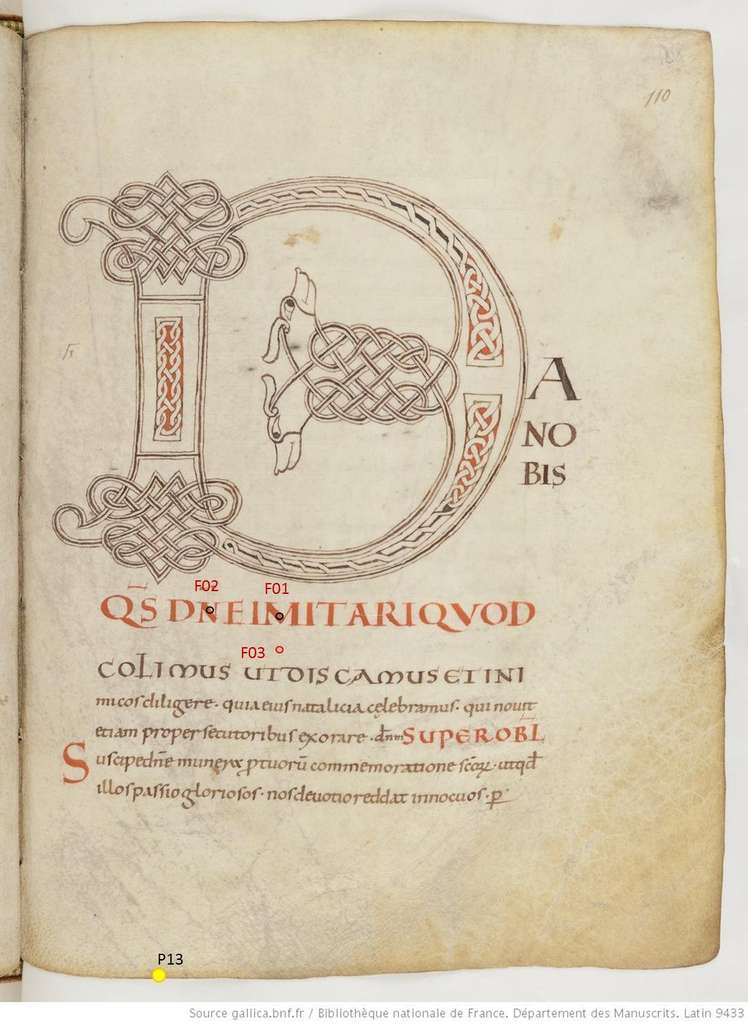 110
D
A
NO
BIS
F02
F01
QS̄ DNE IMITARI QVOD
F03
COLIMUS UT DISCAMUS ET INI
micos diligere · quia eius natalicia celebramus · qui nouit
etiam pro persecutoribus exorare · dnm SUPER OBL
Suscipe dne munera p tuorū commemoratione scōꝝ · ut qd
illos passio gloriosos · nos deuotio reddat innocuos · p̄
P13
Source gallica.bnf.fr / Bibliothèque nationale de France. Département des Manuscrits. Latin 9433